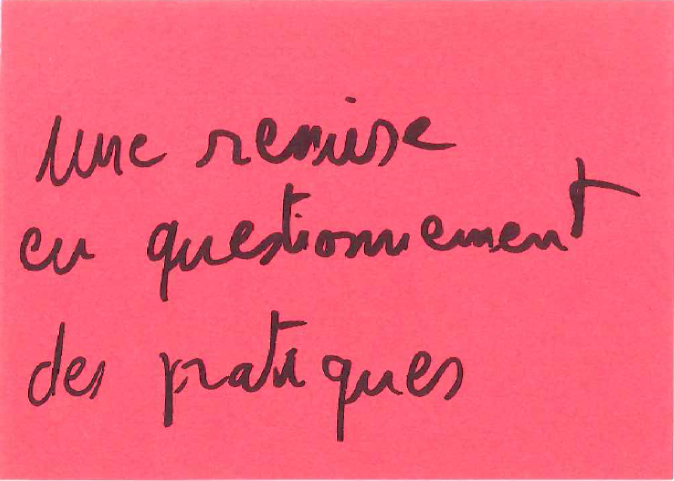 Une remise
en questionnement
des pratiques